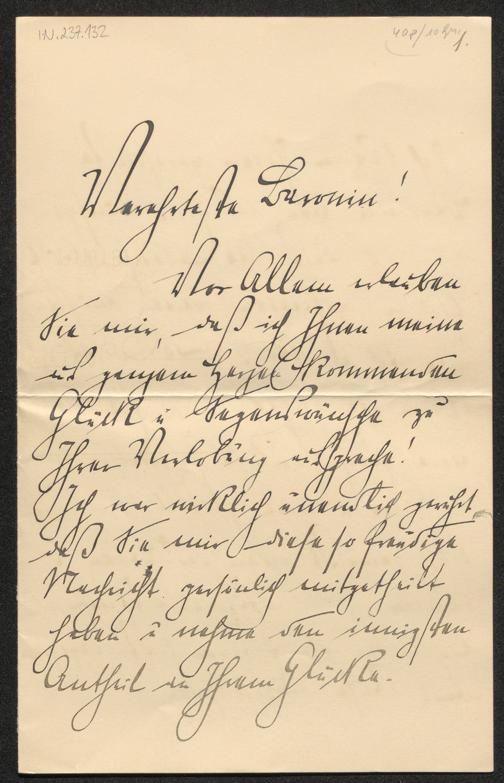 I.N. 237.132
1.
Verehrteste Baronin!
Vor Allem erlauben
Sie mir, daß ich Ihnen meine
aus ganzem Herzen kommenden
Glück u Segenswünsche zu
Ihrer Verlobung ausspreche!
Ich war wirklich unendlich gerührt
daß Sie mir diese so freudige
Nachricht persönlich mitgetheilt
haben u nehme den innigsten
Antheil an Ihrem Glücke.